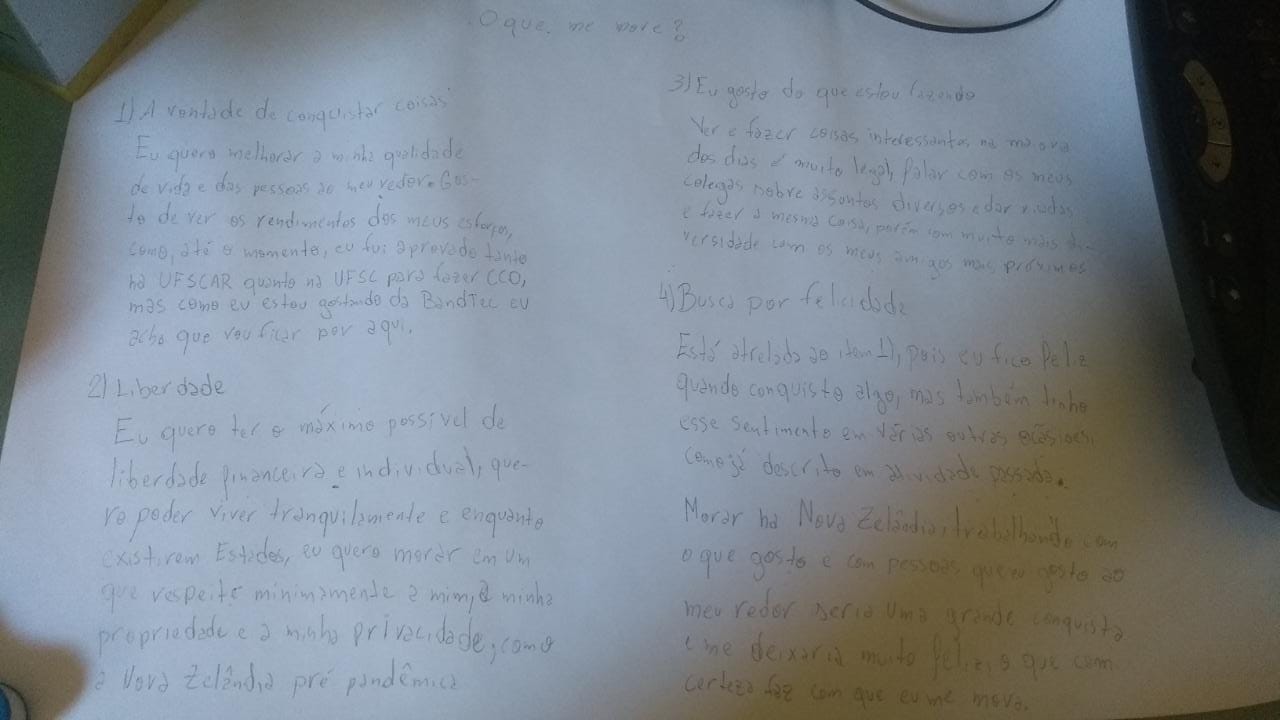 O que me move?
1) A vontade de conquistar coisas
Eu quero melhorar a minha qualidade
de vida e das pessoas ao meu redor. Gos-
to de ver os rendimentos dos meus esforços,
como, até o momento, eu fui aprovado tanto
na UFSCAR quanto na UFSC para fazer CCO,
mas como eu estou gostando da BandTec eu
acho que vou ficar por aqui.
2) Liberdade
Eu quero ter o máximo possível de
liberdade financeira e individual, que-
ro poder viver tranquilamente e enquanto
existirem Estados, eu quero morar em um
que respeite minimamente a mim, a minha
propriedade e a minha privacidade, como
a Nova Zelândia pré pandêmica
3) Eu gosto do que estou fazendo
Ver e fazer coisas interessantes na maioria
dos dias é muito legal, falar com os meus
colegas sobre assuntos diversos e dar risadas
e fazer a mesma coisa, porém com muito mais di-
versidade com os meus amigos mais próximos
4) Busca por felicidade
Está atrelada ao item 1), pois eu fico feliz
quando conquisto algo, mas também tenho
esse sentimento em várias outras ocasiões,
como já descrito em atividade passada.
Morar na Nova Zelândia, trabalhando com
o que gosto e com pessoas que eu gosto ao
meu redor seria uma grande conquista
e me deixaria muito feliz, o que com
certeza faz com que eu me mova.